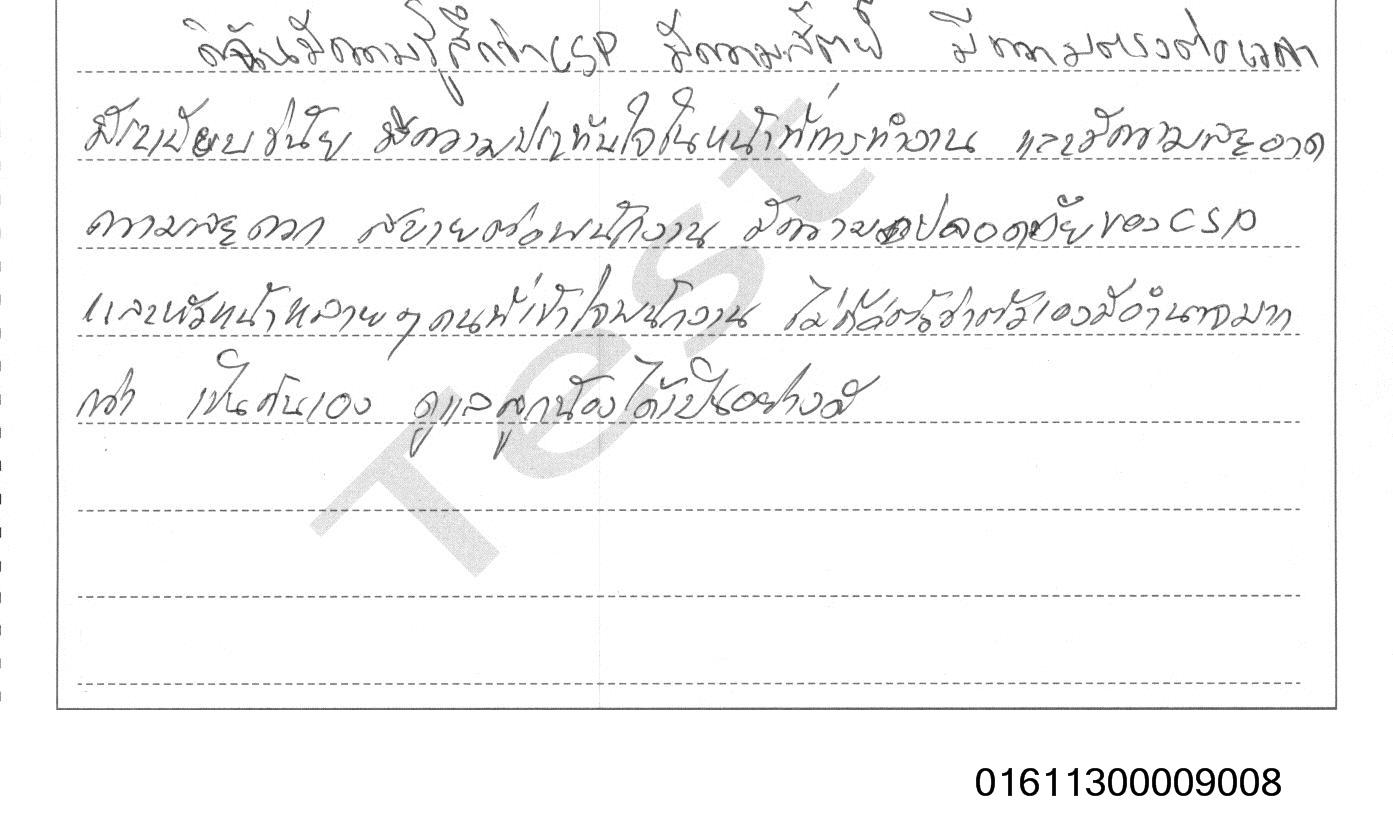 ดิฉันมีความรู้สึกว่า CSP มีความสัตย์ มีความตรงต่อเวลา
มีระเบียบวินัย มีความประทับใจในหน้าที่การทำงาน และมีความสะอาด
ความสะดวก สบายต่อพนักงาน มีความปลอดภัยของ CSP
และหัวหน้าหลาย ๆ คนที่เข้าใจพนักงาน ไม่ถือตัวว่าตัวเองมีอำนาจมาก
กว่า เป็นกันเอง ดูแลลูกน้องได้เป็นอย่างดี
Test
01611300009008